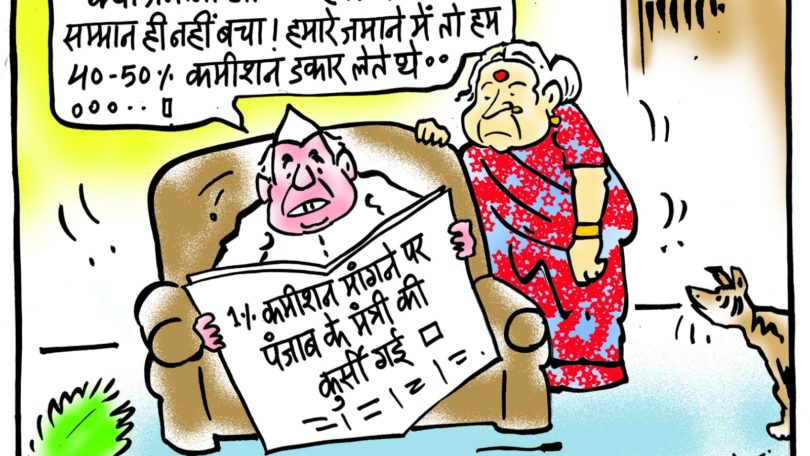 सम्मान ही नहीं बचा! हमारे जमाने में तो हम
40-50% कमीशन डकार लेते थे..
1% कमीशन मांगने पर
पंजाब के मंत्री की
कुर्सी गई